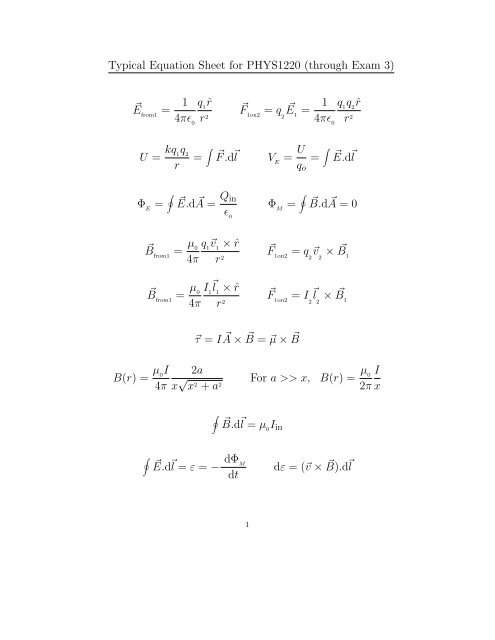 Typical Equation Sheet for PHYS1220 (through Exam 3)
$\vec{E}_{\text{from1}} = \frac{1}{4\pi\epsilon_0} \frac{q_1 \hat{r}}{r^2}$ $\vec{F}_{\text{1on2}} = q_2 \vec{E}_1 = \frac{1}{4\pi\epsilon_0} \frac{q_1 q_2 \hat{r}}{r^2}$
$U = \frac{kq_1 q_2}{r} = \int \vec{F}.\text{d}\vec{l}$ $V_E = \frac{U}{q_0} = \int \vec{E}.\text{d}\vec{l}$
$\Phi_E = \oint \vec{E}.\text{d}\vec{A} = \frac{Q_{\text{in}}}{\epsilon_0}$ $\Phi_M = \oint \vec{B}.\text{d}\vec{A} = 0$
$\vec{B}_{\text{from1}} = \frac{\mu_0}{4\pi} \frac{q_1 \vec{v}_1 \times \hat{r}}{r^2}$ $\vec{F}_{\text{1on2}} = q_2 \vec{v}_2 \times \vec{B}_1$
$\vec{B}_{\text{from1}} = \frac{\mu_0}{4\pi} \frac{I_1 \vec{l}_1 \times \hat{r}}{r^2}$ $\vec{F}_{\text{1on2}} = I_2 \vec{l}_2 \times \vec{B}_1$
$\vec{\tau} = I\vec{A} \times \vec{B} = \vec{\mu} \times \vec{B}$
$B(r) = \frac{\mu_0 I}{4\pi} \frac{2a}{x\sqrt{x^2 + a^2}}$ For $a >> x$, $B(r) = \frac{\mu_0}{2\pi} \frac{I}{x}$
$\oint \vec{B}.\text{d}\vec{l} = \mu_0 I_{\text{in}}$
$\oint \vec{E}.\text{d}\vec{l} = \varepsilon = -\frac{\text{d}\Phi_M}{\text{d}t}$ $\text{d}\varepsilon = (\vec{v} \times \vec{B}).\text{d}\vec{l}$
1